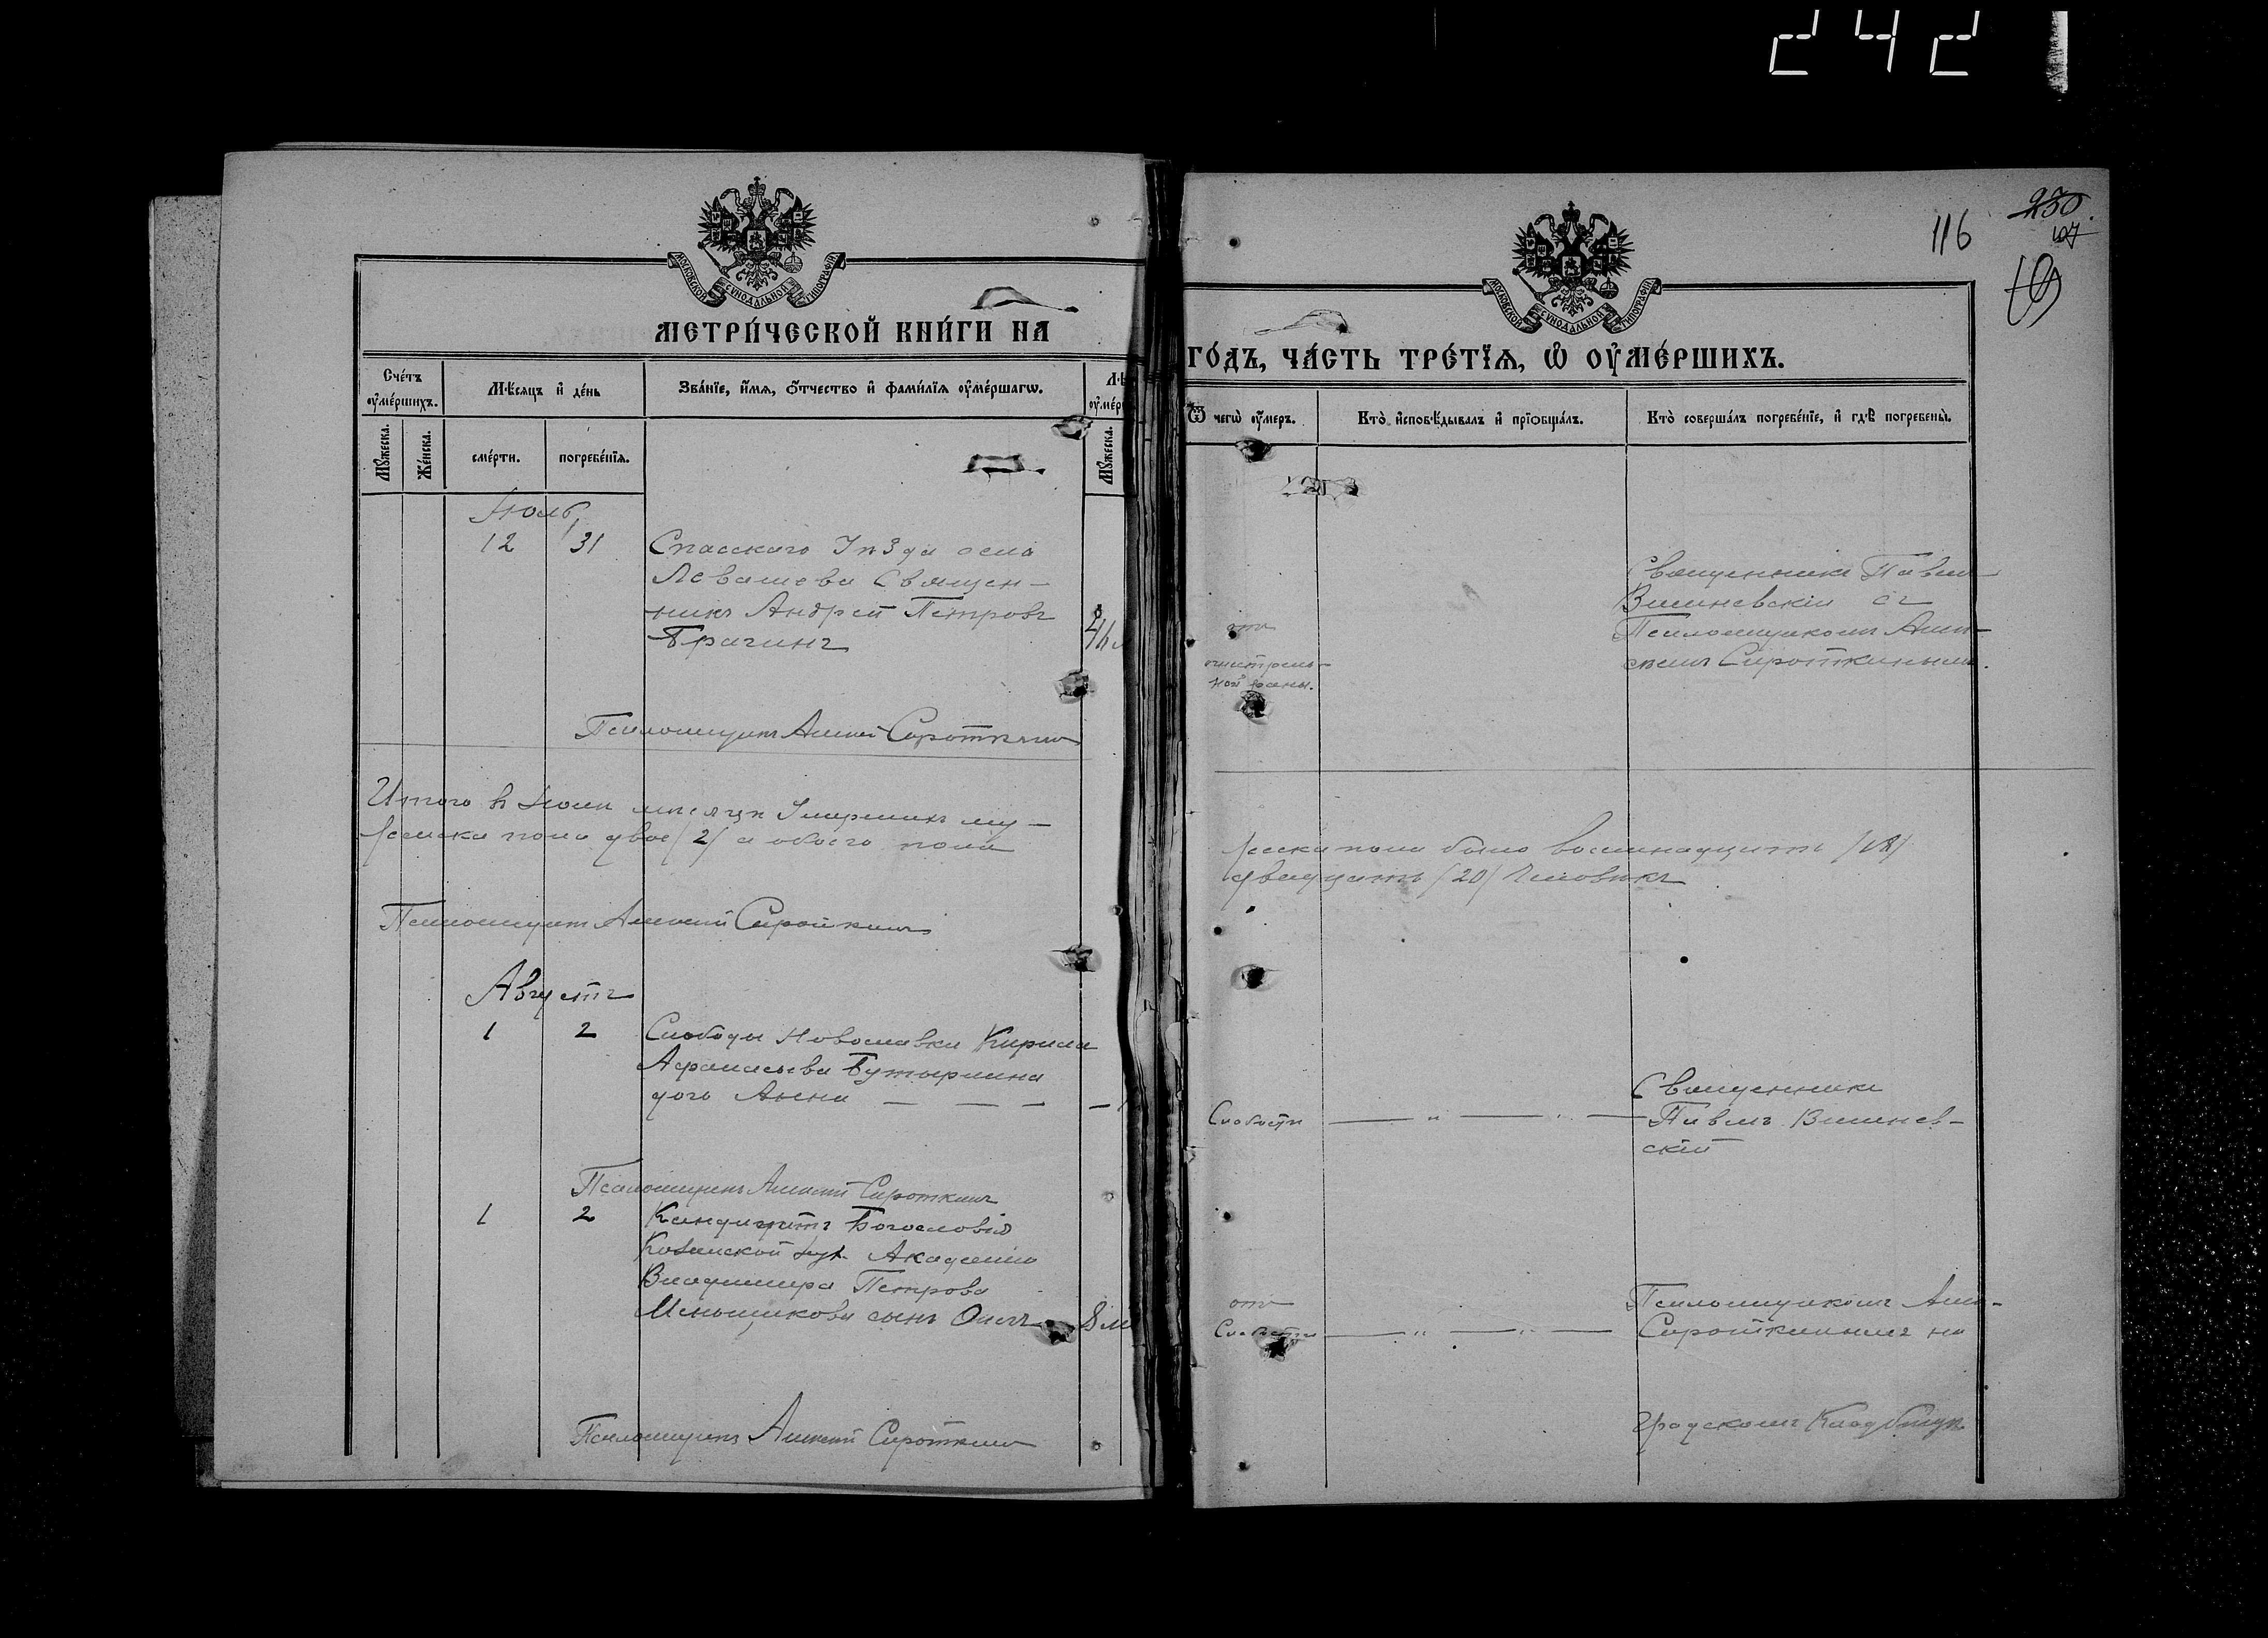 242
МОСКОВСКОЙ СѴНОДАЛЬНОЙ ТИПОГРАФІИ
МЕТРИ́ЧЕСКОЙ КНИ́ГИ НА
Сче́тъ оу҆ме́ршихъ.
Мѣ́сяцъ и҆ де́нь
Зва́нїе, и҆́мя, ѻ҆́тчество и҆ фами́лїя оу҆ме́ршагѡ.
Мꙋ́жеска.
Же́нска.
сме́рти.
погребе́нїя.
Мꙋ́жеска.
Июль
12 31 Спасскаго Уѣзда села
Левашева Священ-
никъ Андрей Петровъ
Брагинъ
Псаломщикъ Алексѣй Сироткинъ
Итого въ Июлѣ мѣсяцѣ Умершихъ му-
жеска пола двое /2/ а обоего пола
Псаломщикъ Алексѣй Сироткинъ
Августъ
1 2 Слободы Новославки Кирила
Афанасьева Бутырина
дочь Анна
Псаломщикъ Алексѣй Сироткинъ
1 2 Кандидатъ Богословія
Казанской Дух. Академіи
Владимира Петрова
Меньщикова сынъ Олегъ 8 м
Псаломщикъ Алексѣй Сироткинъ
116
230
МОСКОВСКОЙ СѴНОДАЛЬНОЙ ТИПОГРАФІИ
ГО́ДЪ, ЧА́СТЬ ТРЕ́ТЇЯ, Ѡ҆ ОУ҆МЕ́РШИХЪ.
Ѿ чегѡ̀ оу҆́меръ.
Кто̀ и҆сповѣ́дывалъ и҆ прїѡбща́лъ.
Кто̀ соверша́лъ погребе́нїе, и҆ гдѣ̀ погребены̀.
Священникъ Павелъ
Вишневскій съ
отъ Псаломщикомъ Алек-
сѣемъ Сироткинымъ.
огнестрель-
ной раны.
жеска пола было восемнадцать /18/
двадцать /20/ Человѣкъ
Священникъ
Слабости Павелъ Вишнев-
скій
отъ Псаломщикомъ Алек-
Слабости Сироткинымъ на
Градскомъ Кладбищѣ